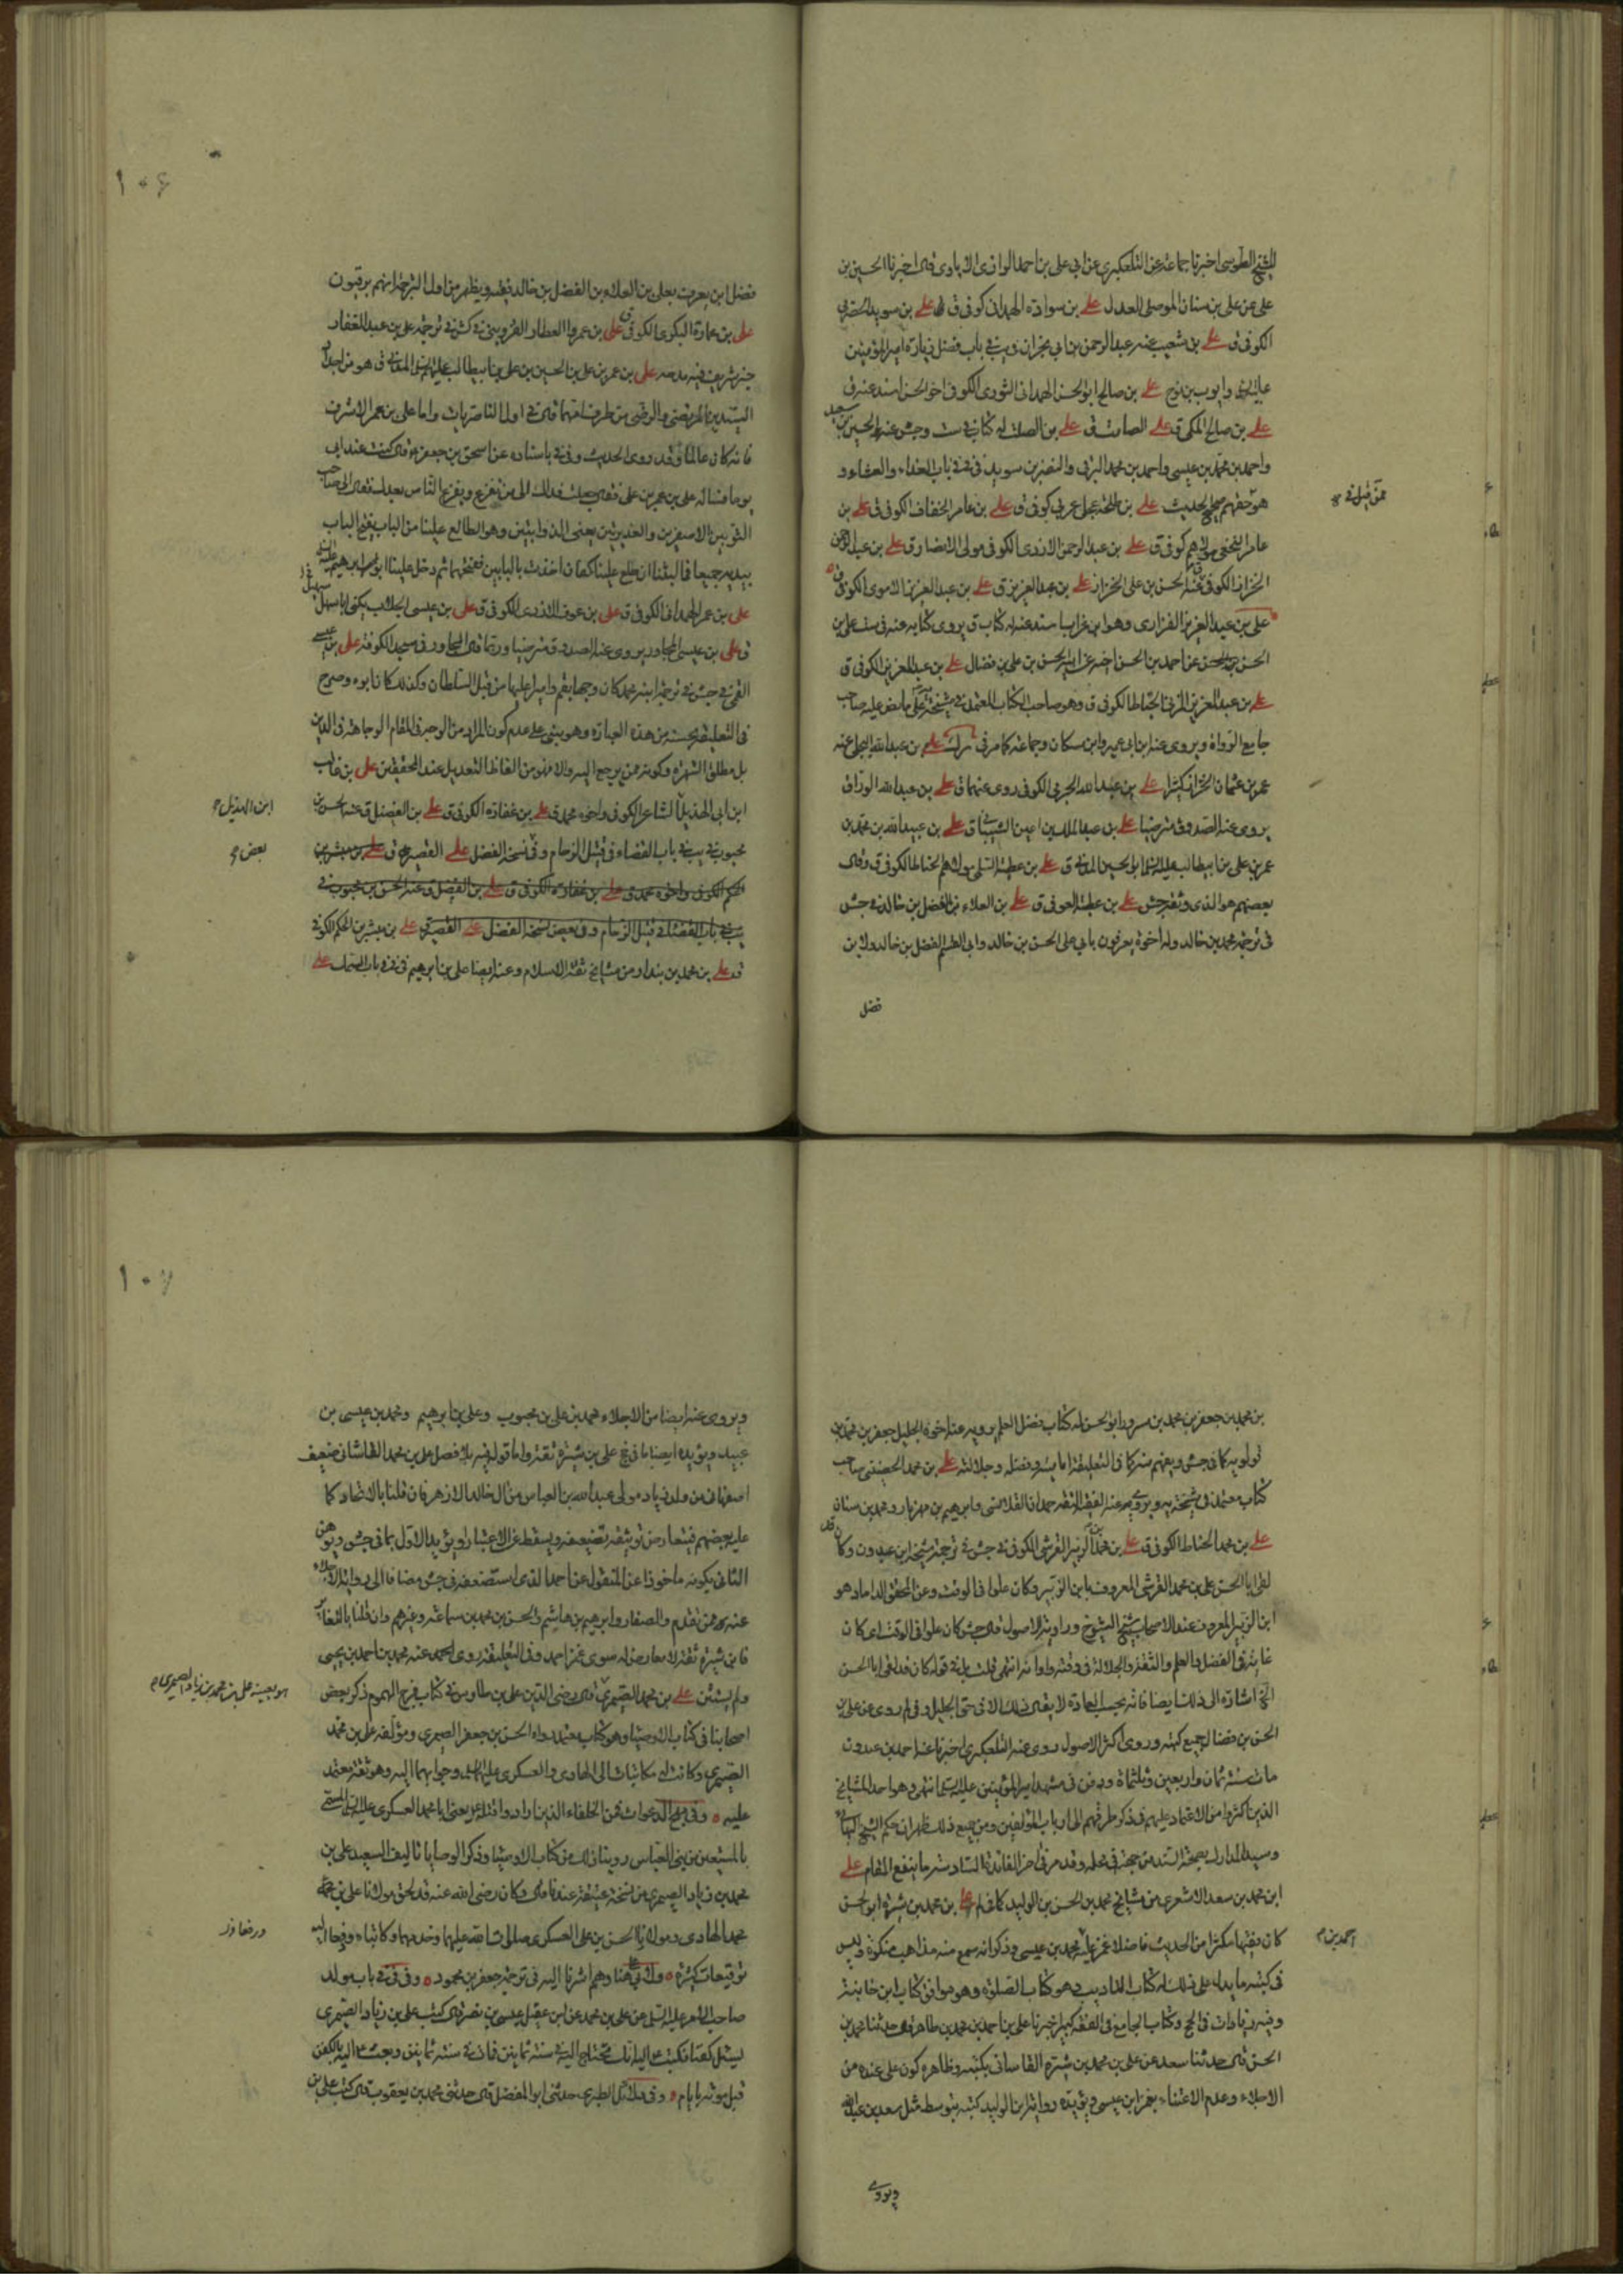 للشيخ الطوسي اخبرنا جماعة عن التلعكبري عن ابي علي بن احمد الرازي الايادي قال اخبرنا الحسين بن
علي عن علي بن سنان الموصلي العدل علي بن سوادة الهمداني كوفي ق علي بن سويد الحضرمي
الكوفي ق علي بن شعيب عنه عبد الرحمن بن ابي نجران في يب في باب فضل زيارة امير المؤمنين
وايوب بن نوح علي بن صالح ابو الحسن الهمداني الثوري الكوفي اخو الحسن اسند عنه ق
علي بن صالح المكي ق علي الصامت ق علي بن الصلت له كتاب في ست وجش عنه الحسين بن سعيد
واحمد بن محمد بن عيسى واحمد بن محمد البرقي والنضر بن سويد في في باب الغداء والعشاء و
هو حقهم صحيح الحديث علي بن طلحة عجلي عربي كوفي ق علي بن عامر الخفاف الكوفي ق علي بن
عامر النخعي مولاهم كوفي ق علي بن عبد الرحمن الازدي الكوفي مولى الانصار ق علي بن عبد الرحمن
الخزاز الكوفي عنه الحسن بن علي الخزاز علي بن عبد العزيز ق علي بن عبد العزيز الاموي الكوفي
علي بن عبد العزيز الفزاري وهو ابن غراب اسند عنه له كتاب ق يروي كتابه عنه في ست علي بن
الحسن عن احمد بن الحسن اخيه عن ابيه الحسن بن علي بن فضال علي بن عبد العزيز الكوفي ق
علي بن عبد العزيز المزني الحناط الكوفي ق وهو صاحب الكتاب المعتمد في مشيخة يه على ما نص عليه صاحب
جامع الرواة ويروي عنه ابن ابي عمير وابن مسكان وجماعة كما مر في علي بن عبد الله البجلي عنه
عمر بن عثمان الخزاز كثيرا علي بن عبد الله الجرمي الكوفي روى عنهما ق علي بن عبد الله الوراق
يروي عنه الصدوق مترضيا علي بن عبد الملك بن اعين الشيباني ق علي بن عبيد الله بن محمد بن
عمر بن علي بن ابيطالب عليه السلام ابو الحسين المدني ق علي بن عطية السلمي مولاهم الحناط الكوفي ق وقال
بعضهم هو الذي وثقه جش علي بن عطية العوفي ق علي بن العلاء بن الفضل بن خالد في جش
في ترجمة محمد بن خالد وله اخوة يعرفون بابي علي الحسن بن خالد وابي القسم الفضل بن خالد ولابن
فضل
١٠٦
فضل ابن يعرف بعلي بن العلاء بن الفضل بن خالد فقيه ويظهر من اول الترجمة انهم برقيون
علي بن عمارة البكري الكوفي ق علي بن عمرو العطار القزويني في كش في ترجمة علي بن عبد الغفار
خبر شريف فيه مدحه علي بن عمر بن علي بن الحسين بن علي بن ابيطالب عليهم السلام المدني ق هو من اجداد
السيدين المرتضى والرضي من طرف امهما قال في اول الناصريات واما علي بن عمر الاشرف
فانه كان عالما وقد روى الحديث وفي في باسناده عن اسحق بن جعفر قال كنت عند ابي
يوما فسأله علي بن عمر بن علي فقال جعلت فداك الى من نفزع ويفزع الناس بعدك فقال الى صاحب
الثوبين الاصفرين والغديرتين يعني الذؤابتين وهو الطالع علينا من الباب يفتح الباب
بيديه جميعا فما لبثنا ان طلع علينا كفان اخذت بالبابين ففتحهما ثم دخل علينا ابو ابراهيم
علي بن عمر الهمداني الكوفي ق علي بن عوف الازدي الكوفي ق علي بن عيسى الجلاب يكنى ابا سهل
ق علي بن عيسى المجاور يروي عنه الصدوق مترضيا وربما قال المجاور في مسجد الكوفة علي بن عيسى
القمي في جش في ترجمة ابنه محمد كان وجها بقم واميرا عليها من قبل السلطان وكذلك كان ابوه وصرح
في التعليقة بحسنه من هذه العبارة وهو يبتني على عدم كون المراد من الوجه في المقام الوجاهة في الدين
بل مطلق الشهرة وكونه ممن يرجع اليه والا فهو من الفاظ التعديل عند المحققين علي بن غالب
ابن ابي الهذيل الشاعر الكوفي واخوه محمد ق علي بن غفارة الكوفي ق علي بن الفضل ق عنه الحسن بن
محبوب في يب في باب القضاء في قتيل الزحام وفي نسخة الفضل علي القصير ق علي بن مبشر بن
الحكم الكوفي واخوه محمد ق علي بن غفارة الكوفي ق علي بن الفضل ق عنه الحسن بن محبوب في
يب في باب القضاء في قتيل الزحام وفي بعض نسخه الفضل علي القصير ق علي بن مبشر بن الحكم الكوفي
ق علي بن محمد بن بندار من مشايخ ثقة الاسلام وعنه ايضا علي بن ابراهيم في في في باب الضحك علي
ابن الهذيل
بعض
بن محمد بن جعفر بن محمد بن مسرور ابو الحسن له كتاب فضل العلم يرويه عنه اخوه الجليل جعفر بن محمد بن
قولويه كما في جش ويفهم منه كما في التعليقة اماميته وفضله وجلالته علي بن محمد الحضيني صاحب
كتاب معتمد في مشيخة يه ويرويه عنه الفقيه الثقة حمدان القلانسي وابراهيم بن مهزيار ومحمد بن سنان
علي بن محمد الحناط الكوفي ق علي بن محمد بن الزبير القرشي الكوفي في جش في ترجمة شيخه ابن عبدون وكان قد
لقي ابا الحسن علي بن محمد القرشي المعروف بابن الزبير وكان علوا في الوقت وعن المحقق الداماد هو
ابن الزبير المعروف عند الاصحاب شيخ الشيوخ وراوية الاصول قال جش كان علوا في الوقت اي كان
غاية في الفضل والعلم والثقة والجلالة في وقته واوانه انتهى قلت بل في قوله كان قد لقي ابا الحسن
الخ اشارة الى ذلك ايضا فانه بحسب العادة لا يقال ذلك الا في حق الجليل وفي لم روى عن علي بن
الحسن بن فضال جميع كتبه وروى اكثر الاصول روى عنه التلعكبري اخبرنا عنه احمد بن عبدون
مات سنة ثمان واربعين وثلثمائة ودفن في مشهد امير المؤمنين عليه السلام انتهى وهو احد المشايخ
الذين اكثروا من الاعتماد عليهم في ذكر طرقهم الى ارباب المؤلفين ومن جميع ذلك ظهر ان حكم الشيخ البهائي
وسيد المدارك بصحة السند من جهته في محله وقد مر في اخر الفائدة السادسة ما ينفع المقام علي
ابن محمد بن سعد الاشعري من مشايخ محمد بن الحسن بن الوليد كما في لم علي بن محمد بن شيرة ابو الحسن
كان فقيها مكثرا من الحديث فاضلا غمز عليه احمد بن محمد بن عيسى وذكر انه سمع منه مذاهب منكرة وليس
في كتبه ما يدل على ذلك له كتاب التأديب وهو كتاب الصلوة وهو موافق كتاب ابن خانبه
وفيه زيادات في الحج وكتاب الجامع في الفقه كبير اخبرنا علي بن احمد بن محمد بن طاهر قال حدثنا محمد بن
الحسن قال حدثنا سعد عن علي بن محمد بن شيرة القاساني بكتبه وظاهره كون علي عنده من
الاجلاء وعدم الاعتناء بغمز ابن عيسى ويؤيده رواية ابن الوليد كتبه بتوسط مثل سعد بن عبد الله
ويروي
١٠٧
ويروي عنه ايضا من الاجلاء محمد بن علي بن محبوب وعلي بن ابراهيم ومحمد بن عيسى بن
عبيد ويؤيده ايضا ما في علي بن شيرة ثقة واما قوله فيه بلا فصل علي بن محمد القاشاني ضعيف
اصفهاني من ولد زياد مولى عبد الله بن العباس من آل خالد الازهر فان قلنا بالاتحاد كما
عليه بعضهم فيتعارض توثيقه بتضعيفه ويسقط عن الاعتبار ويؤيد الاول بما في جش ويوهن
الثاني بكونه ماخوذا عن المنقول عن احمد الذي استضعفه في جش مضافا الى رواية الاجلاء
عنه ممن تقدم والصفار وابراهيم بن هاشم والحسن بن محمد بن سماعة وغيرهم وان قلنا بالتغاير
فابن شيرة ثقة لا معارض له سوى غمز احمد وفي التعليقة روى عنه محمد بن احمد بن يحيى
ولم يستثن علي بن محمد الصيمري قال رضي الدين علي بن طاوس في كتاب فرج المهموم ذكر بعض
اصحابنا في كتاب الاوصياء وهو كتاب معتمد رواه الحسن بن جعفر الصيمري ومؤلفه علي بن محمد
الصيمري وكانت له مكاتبات الى الهادي والعسكري عليهما السلام وجوابهما اليه وهو ثقة معتمد
عليه وفي مهج الدعوات فمن الخلفاء الذين اراد وا قتله يعني ابا محمد العسكري عليه السلام المسمى
بالمستعين من بني العباس روينا ذلك من كتاب الاوصياء وذكر الوصايا تاليف السعيد علي بن
محمد بن زياد الصيمري من نسخة عتيقة عندنا قال وكان رضي الله عنه قد لحق مولانا علي بن محمد
الهادي ومولانا الحسن بن علي العسكري صلوات الله عليهما وخدمهما وكاتباه ووقعا اليه
توقيعات كثيرة وهم اشرنا اليه في ترجمة جعفر بن محمود وفي في في باب مولد
صاحب الامر عليه السلام عن علي بن محمد عن ابي عقيل عيسى بن نصر قال كتب علي بن زياد الصيمري
يسئل كفنا فكتب عليه السلام اليه انك تحتاج اليه في سنة ثمانين فمات في سنة ثمانين وبعث اليه بالكفن
قبل موته بايام وفي دلائل الطبري حدثني ابو المفضل قال حدثني محمد بن يعقوب قال كتب علي بن
هو بعينه علي بن محمد بن زياد الصيمري
احمد بن